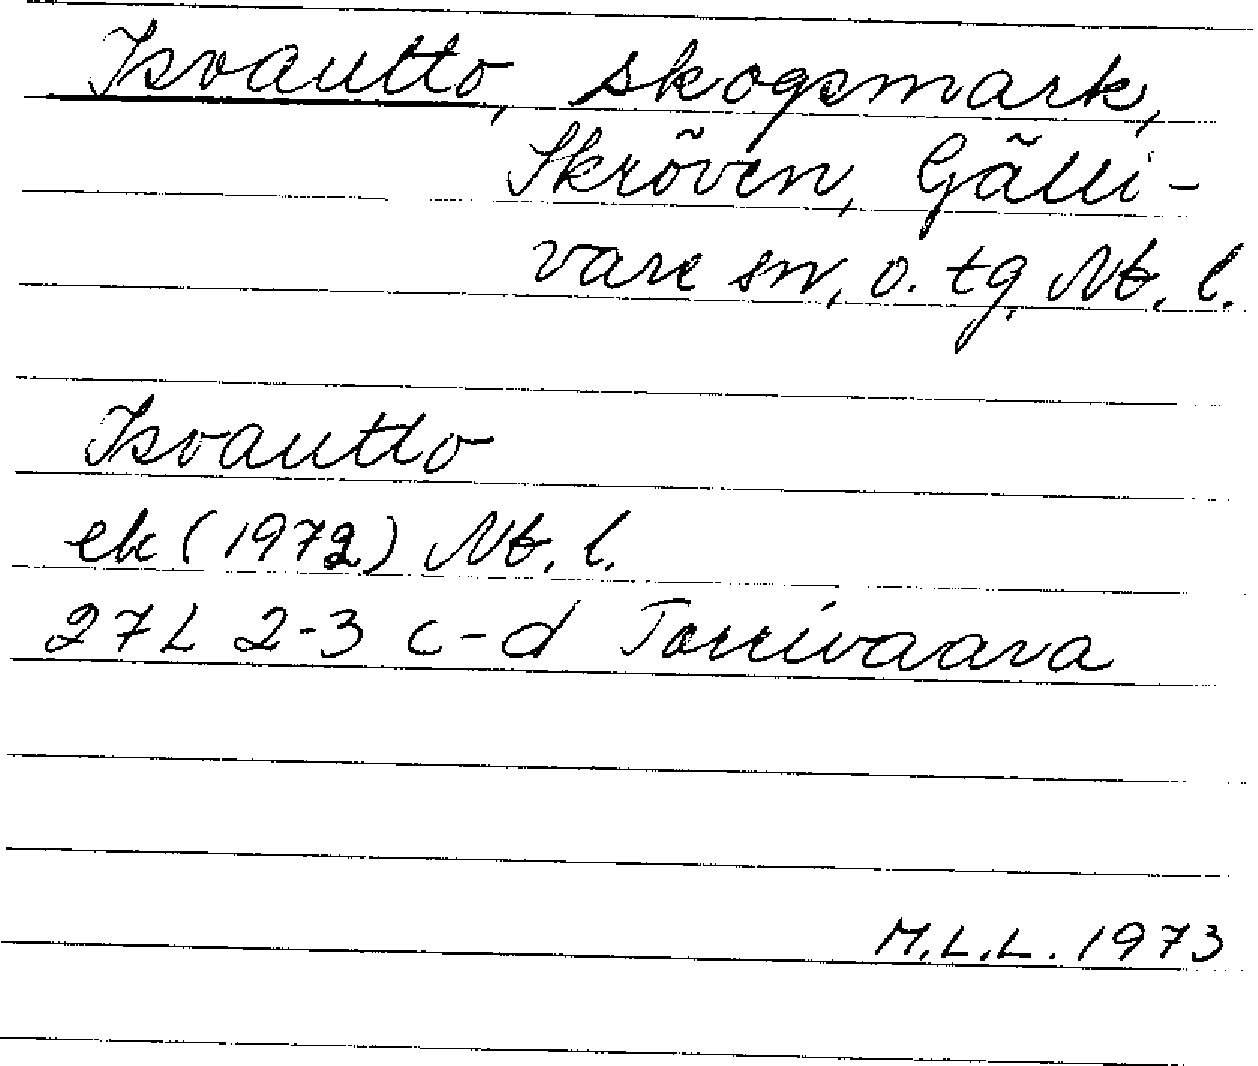 Isvautto, skogsmark,
Skröven, Gälli-
vare sn, o. tg. Nb. l.
Isvautto
ek (1972) Nb. l.
27L 2-3 c-d Torrivaara
M.L.L. 1973